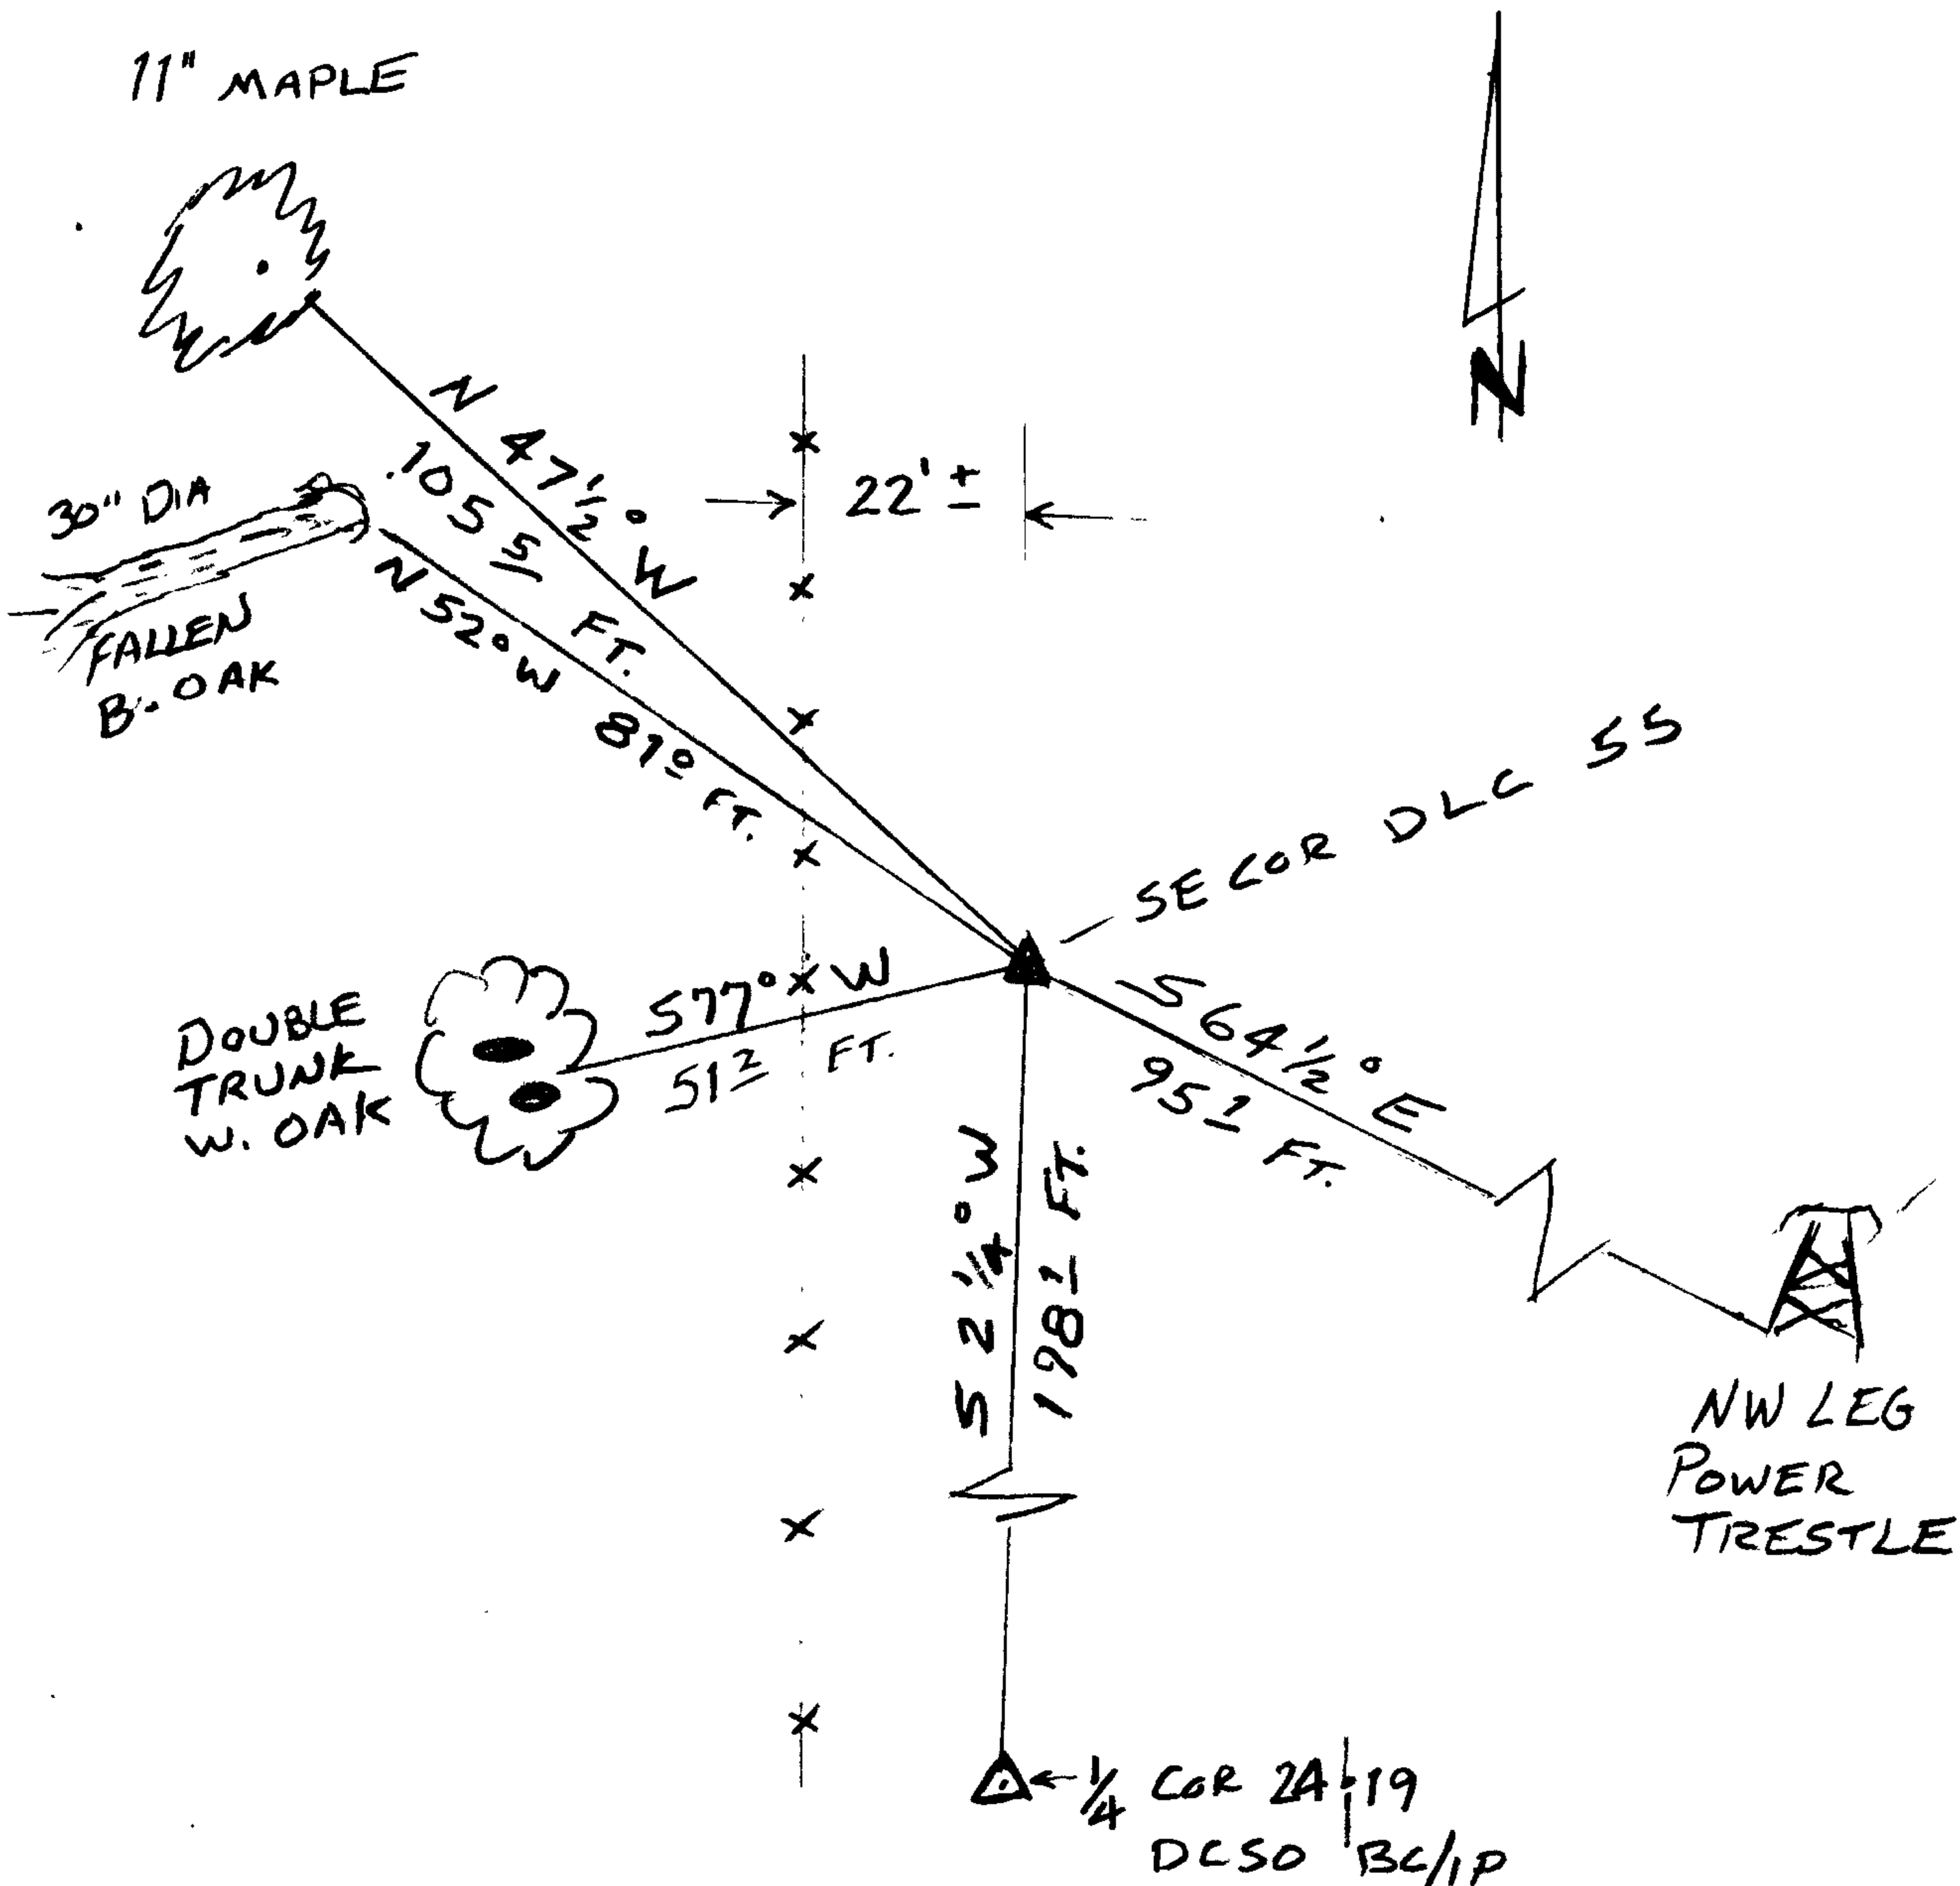 11" MAPLE
N
N 47½° W
105 5 FT.
22' ±
30" DIA
FALLEN
B. OAK
N 52° W 87 0 FT.
SE COR DLC 55
S 77° W
51 2 FT.
DOUBLE
TRUNK
W. OAK
S 64½° E
95 1 FT.
S 2¼° W
198 1 FT.
NW LEG
POWER
TRESTLE
¼ COR 24 | 19
DCSO BC/IP